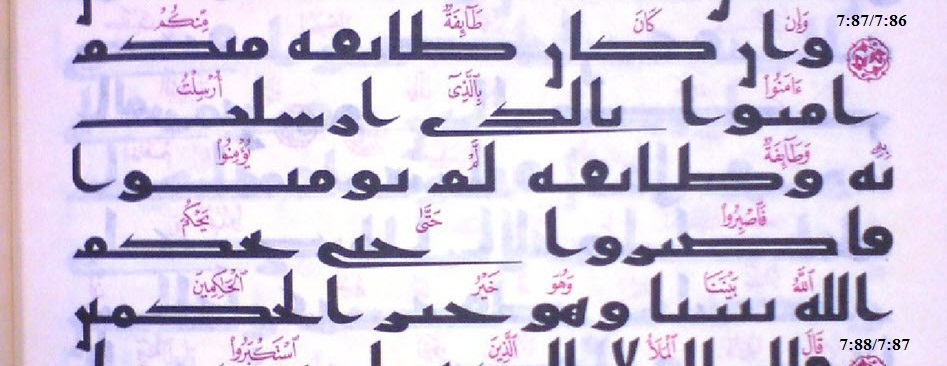 وَإِن كَانَ طَآئِفَةٌ مِّنكُمْ 7:87/7:86
وان كان طايفه منكم
ءَامَنُوا۟ بِٱلَّذِىٓ أُرْسِلْتُ
امنوا بالذى ارسلت
بِهِۦ وَطَآئِفَةٌ لَّمْ يُؤْمِنُوا۟
به وطايفه لم يومنوا
فَٱصْبِرُوا۟ حَتَّىٰ يَحْكُمَ
فاصبروا حتى يحكم
ٱللَّهُ بَيْنَنَا وَهُوَ خَيْرُ ٱلْحَٰكِمِينَ
الله بيننا وهو خير الحكمين
7:88/7:87
قَالَ ٱلْمَلَأُ ٱلَّذِينَ ٱسْتَكْبَرُوا۟